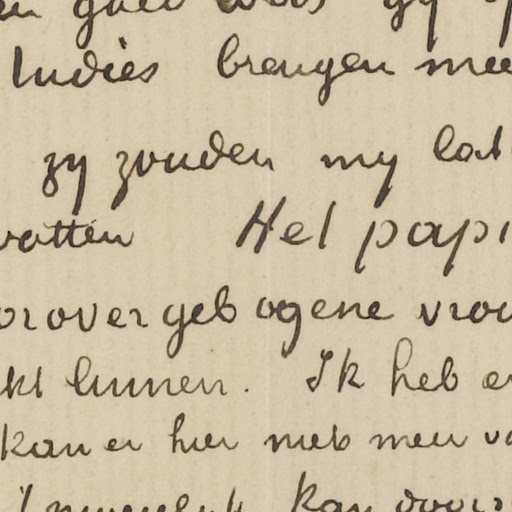 goed was gy
Indies brengen mee
zy zouden my lat
vatten Het papi
orovergebogene vrou
kt linnen. Ik heb e
kan er hier niets meer va
kan door